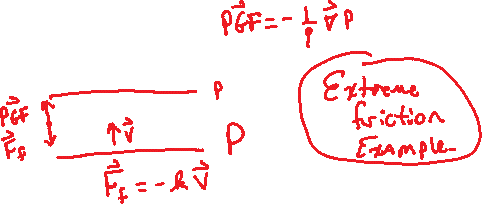 PG⃗F = - 1/ρ ∇⃗ P
P
PG⃗F
F⃗f
↑ V⃗
P
F⃗f = -k V⃗
Extreme
friction
Example